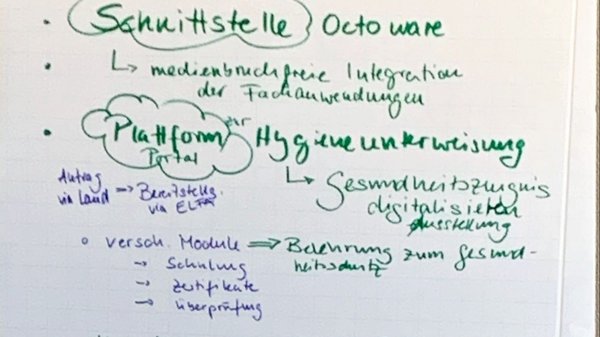 • Schnittstelle Octoware
• ↳ medienbruchfreie Integration
der Fachanwendungen
• Plattform zur Hygieneunterweisung
Portal
Antrag
via Land → Bereitstellg.
via ELFA
↳ Gesundheitszeugnis
digitalisierten
Ausstellung
○ versch. Module ⇒ Belehrung zum Gesund-
heitsschutz
→ Schulung
→ Zertifikate
→ Überprüfung